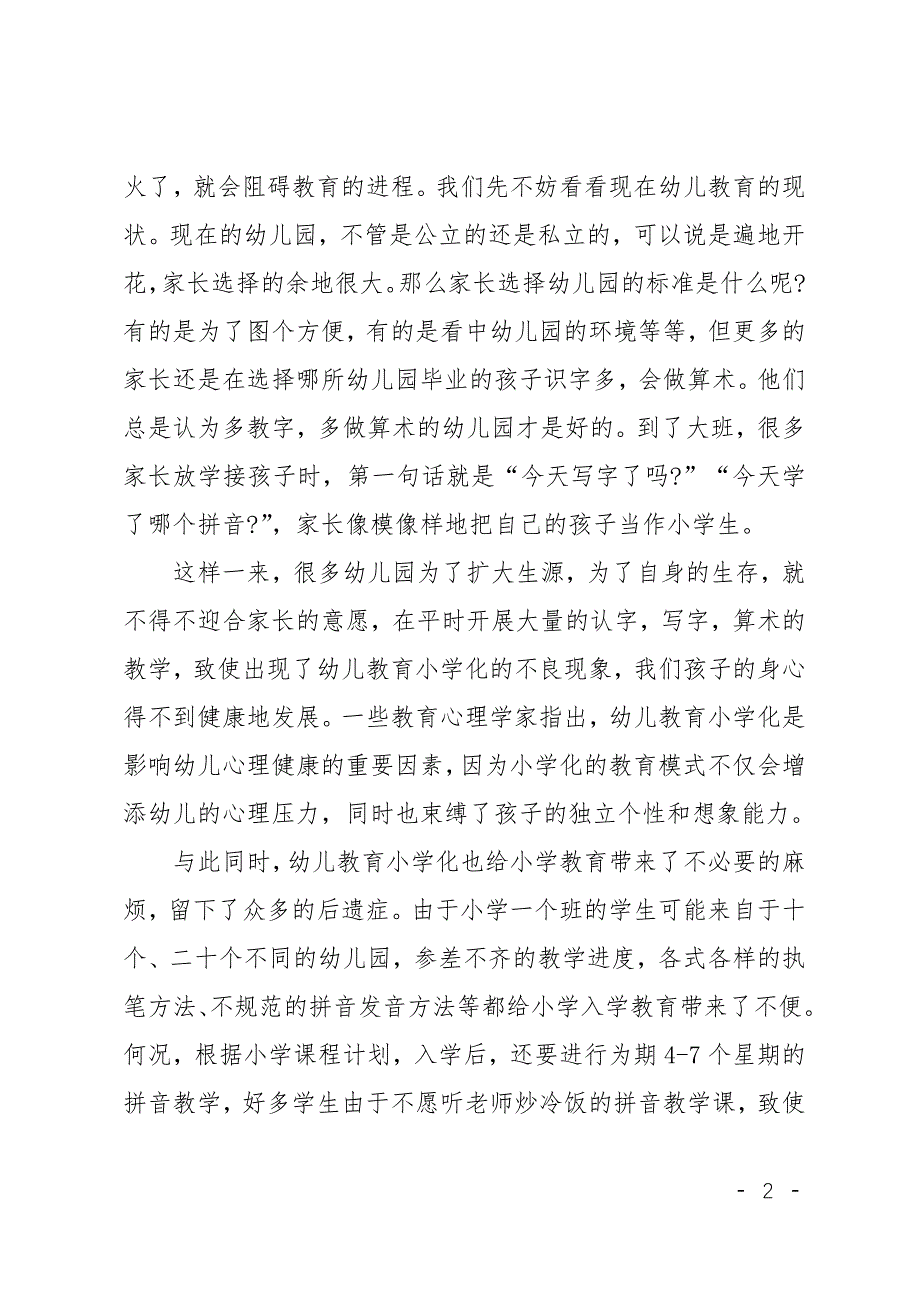 火了，就会阻碍教育的进程。我们先不妨看看现在幼儿教育的现
状。现在的幼儿园，不管是公立的还是私立的，可以说是遍地开
花，家长选择的余地很大。那么家长选择幼儿园的标准是什么呢?
有的是为了图个方便，有的是看中幼儿园的环境等等，但更多的
家长还是在选择哪所幼儿园毕业的孩子识字多，会做算术。他们
总是认为多教字，多做算术的幼儿园才是好的。到了大班，很多
家长放学接孩子时，第一句话就是“今天写字了吗?”“今天学
了哪个拼音?”，家长像模像样地把自己的孩子当作小学生。
这样一来，很多幼儿园为了扩大生源，为了自身的生存，就
不得不迎合家长的意愿，在平时开展大量的认字，写字，算术的
教学，致使出现了幼儿教育小学化的不良现象，我们孩子的身心
得不到健康地发展。一些教育心理学家指出，幼儿教育小学化是
影响幼儿心理健康的重要因素，因为小学化的教育模式不仅会增
添幼儿的心理压力，同时也束缚了孩子的独立个性和想象能力。
与此同时，幼儿教育小学化也给小学教育带来了不必要的麻
烦，留下了众多的后遗症。由于小学一个班的学生可能来自于十
个、二十个不同的幼儿园，参差不齐的教学进度，各式各样的执
笔方法、不规范的拼音发音方法等都给小学入学教育带来了不便。
何况，根据小学课程计划，入学后，还要进行为期 4-7 个星期的
拼音教学，好多学生由于不愿听老师炒冷饭的拼音教学课，致使
- 2 -